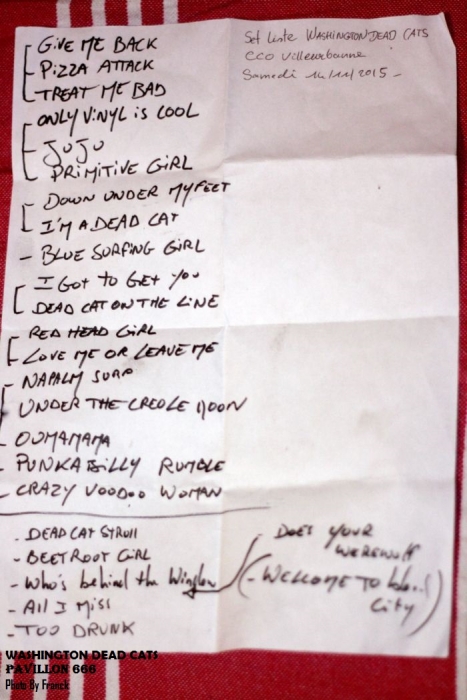 Set Liste WASHINGTON DEAD CATS
CCO Villeurbanne
Samedi 14/11/2015 -
GIVE ME BACK
PIZZA ATTACK
TREAT ME BAD
ONLY VINYL IS COOL
JUJU
PRIMITIVE GIRL
DOWN UNDER MY FEET
I'M A DEAD CAT
- BLUE SURFING GIRL
I GOT TO GET YOU
DEAD CAT ON THE LINE
RED HEAD GIRL
LOVE ME OR LEAVE ME
NAPALM SURF
UNDER THE CREOLE MOON
- OUMAMAMA
- PUNKABILLY RUMBLE
- CRAZY VOODOO WOMAN
- DEAD CAT STROLL
- BEETROOT GIRL
- Who's behind the Window
- All I Miss
- TOO DRUNK
- DOES YOUR
WEREWOLF
(- WELCOME TO
City)
WASHINGTON DEAD CATS
PAVILLON 666
Photo By Franck